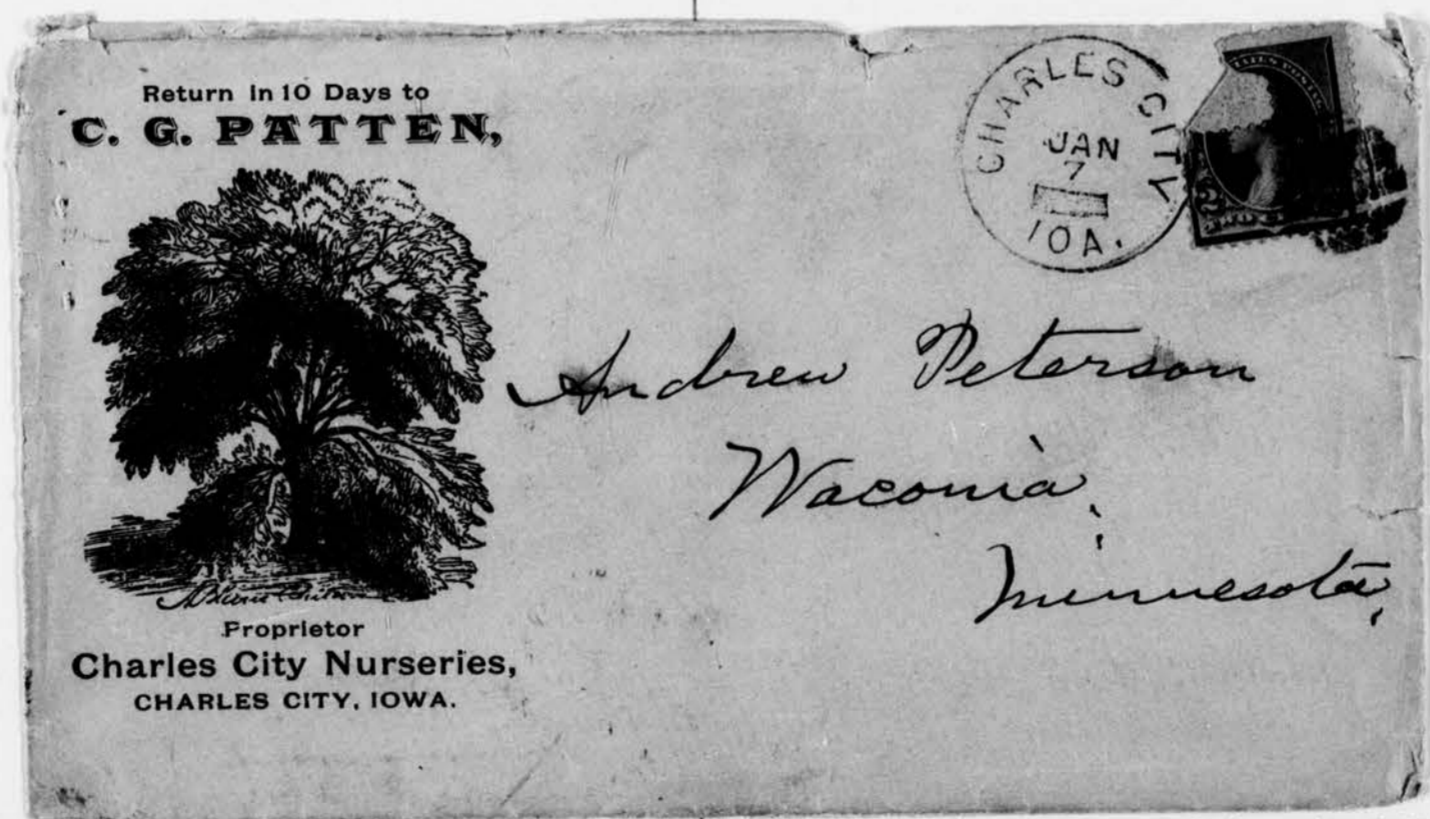 Return in 10 Days to
C. G. PATTEN,
Proprietor
Charles City Nurseries,
CHARLES CITY, IOWA.
CHARLES CITY
JAN
7
IOA.
2
Andrew Peterson
Waconia,
Minnesota,